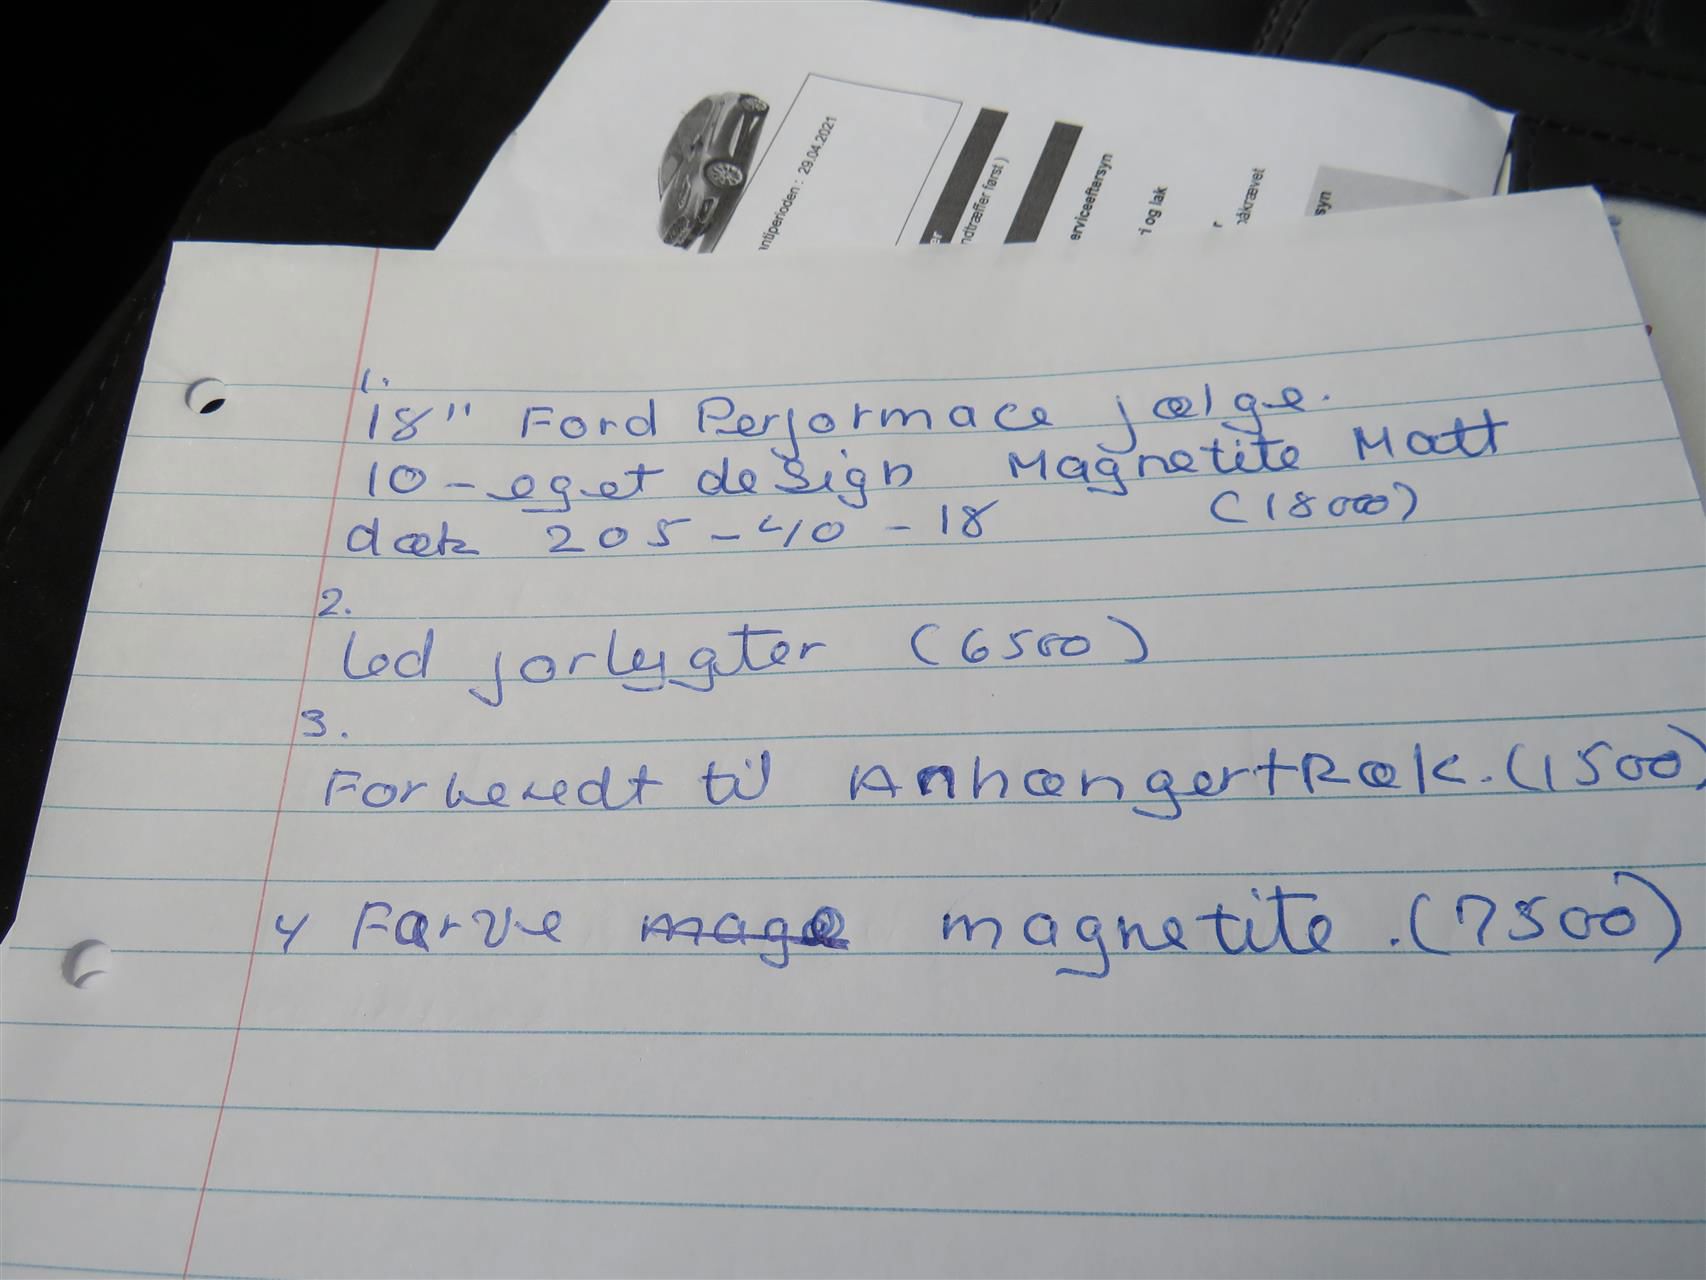 ntiperioden : 29.04.2021
er
ndtræffer først )
erviceeftersyn
i og lak
r
påkrævet
syn
1.
18" Ford Performace fælge.
10-eget design Magnetite Matt
dæk 205-40-18 (18000)
2.
Led forlygter (6500)
3.
Forberedt til AnhængertRæk. (1500)
4 Farve mage magnetite. (7500)